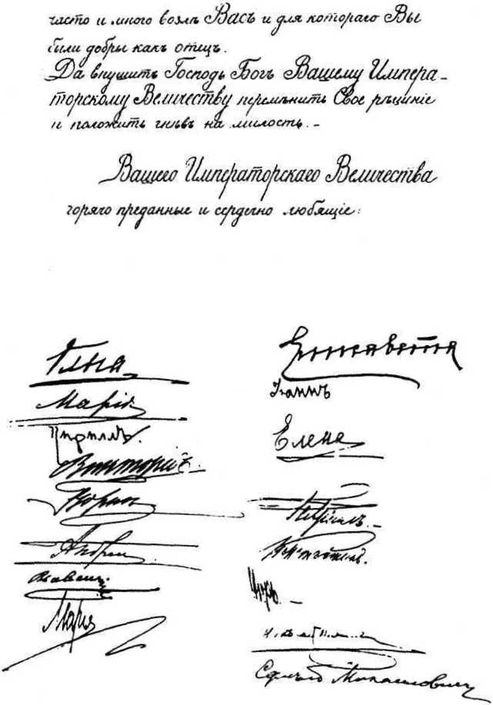 часто и много возлѣ Васъ и для котораго Вы
были добры какъ отецъ.
Да внушитъ Господь Богъ Вашему Импера-
торскому Величеству перемѣнить Свое рѣшеніе
и положить гнѣвъ на милость.-
Вашего Императорскаго Величества
горячо преданные и сердечно любящіе:
Ольга
Марія
Кириллъ.
Викторія.
Борисъ
Андрей
Павелъ
Марія
Елисавета
Іоаннъ
Елена
Гавріилъ.
Константинъ.
Игорь
Сергѣй Михаиловичъ